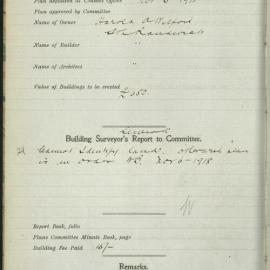 Plan deposited at Council Office Nov 6 1918
Plan approved by Committee
Name of Owner Harold A Welford
Name of Builder "
Name of Architect "
Value of Buildings to be erected £650
Building Surveyor's Report to Committee.
Cannot Identify land. otherwise plan
is in order WS. Nov 6-1918
Report Book, folio
Plans Committee Minute Book, page
Building Fee Paid 10/-
Remarks.